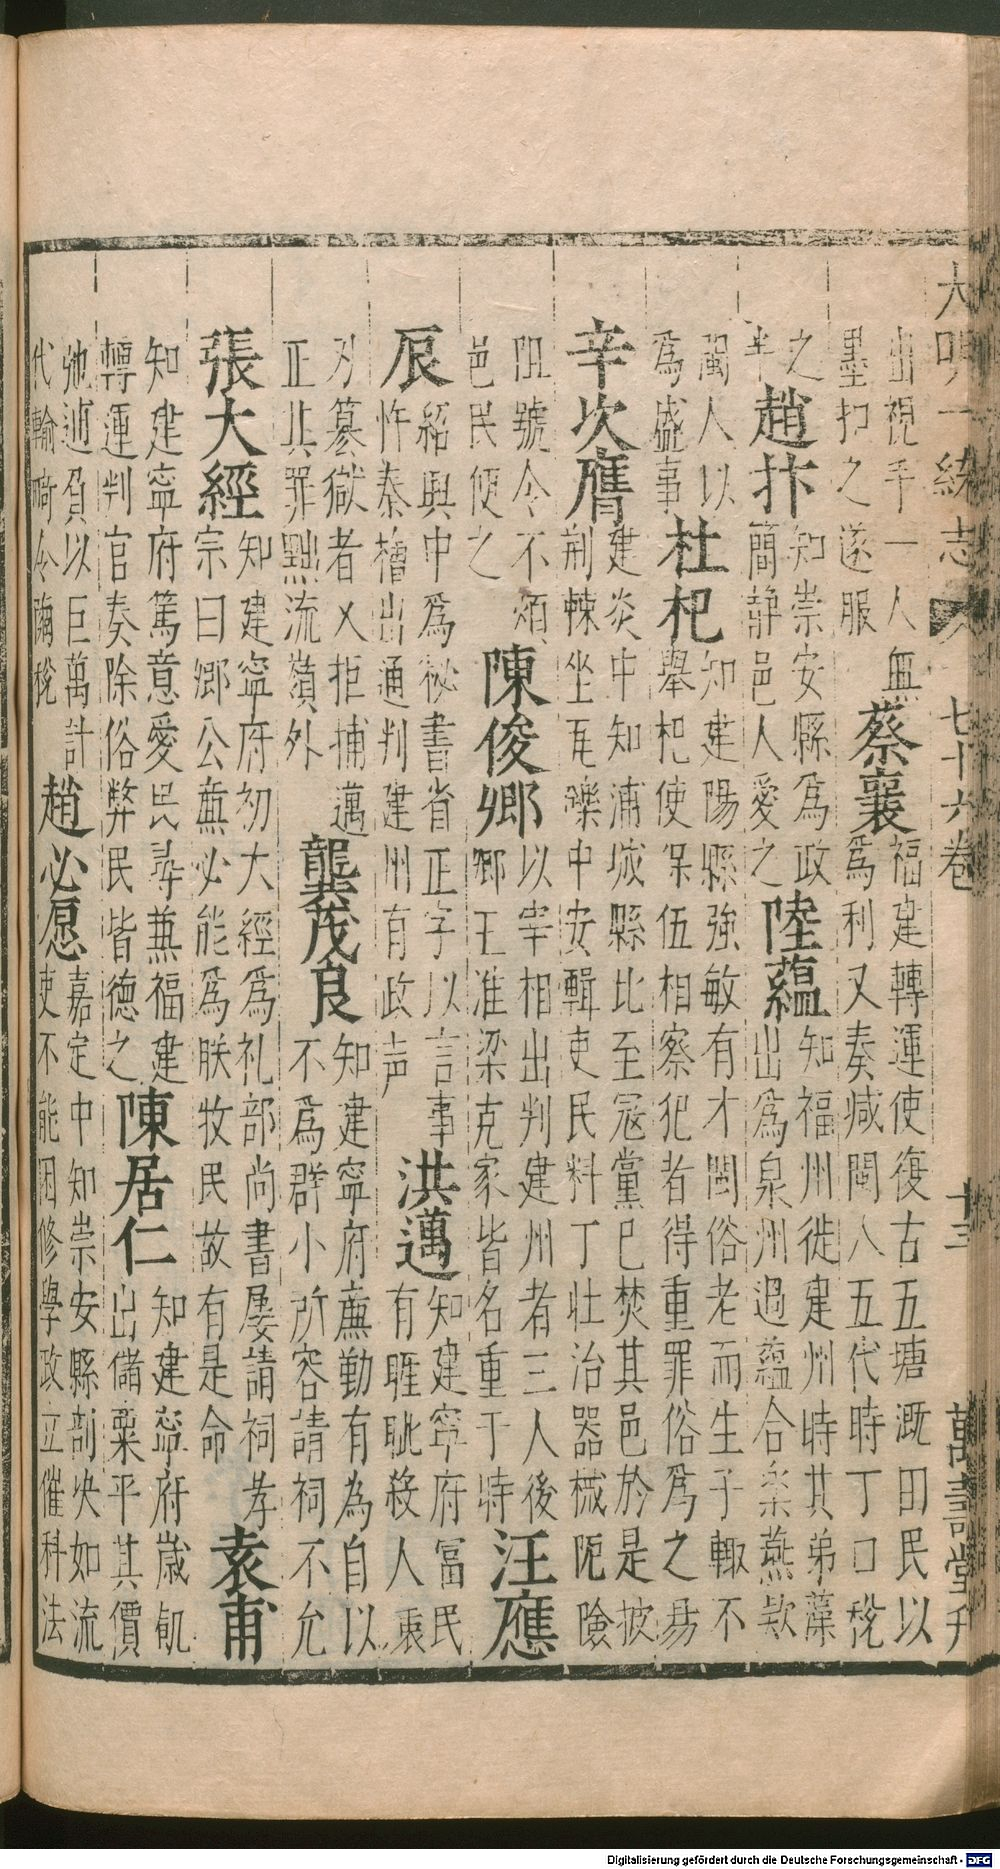 大明一統志 七十六卷 十三 萬壽堂刊
出視手一人無
墨扣之遂服
蔡襄
福建轉運使復古五塘溉田民以
為利又奏減閩人五代時丁口稅
之
半
趙抃
知崇安縣為政
簡靜邑人愛之
陸蘊
知福州徙建州時其弟藻
出為泉州過蘊合樂燕欵
閩人以
為盛事
杜杞
知建陽縣強敏有才閩俗老而生子輒不
舉杞使保伍相察犯者得重罪俗為之易
辛次膺
建炎中知浦城縣比至寇黨已焚其邑於是披
荊棘坐瓦礫中安輯吏民料丁壯治器械阨險
阻號令不煩
邑民便之
陳俊卿
以宰相出判建州者三人後
卿王淮梁克家皆名重于時
汪應
辰
紹興中為秘書省正字以言事
忤秦檜出通判建州有政声
洪邁
知建寧府富民
有睚眦殺人衷
刃篡獄者又拒捕邁
正其罪黥流嶺外
龔茂良
知建寧府廉勤有為自以
不為群小所容請祠不允
張大經
知建寧府初大經為礼部尚書屢請祠孝
宗曰卿公廉必能為朕牧民故有是命
袁甫
知建寧府篤意愛民尋兼福建
轉運判官奏除俗弊民皆德之
陳居仁
知建寧府歲飢
出儲粟平其價
弛逋負以巨萬計
代輸畸令繭稅
趙必愿
嘉定中知崇安縣剖決如流
吏不能困修學政立催科法
Digitalisierung gefördert durch die Deutsche Forschungsgemeinschaft - DFG